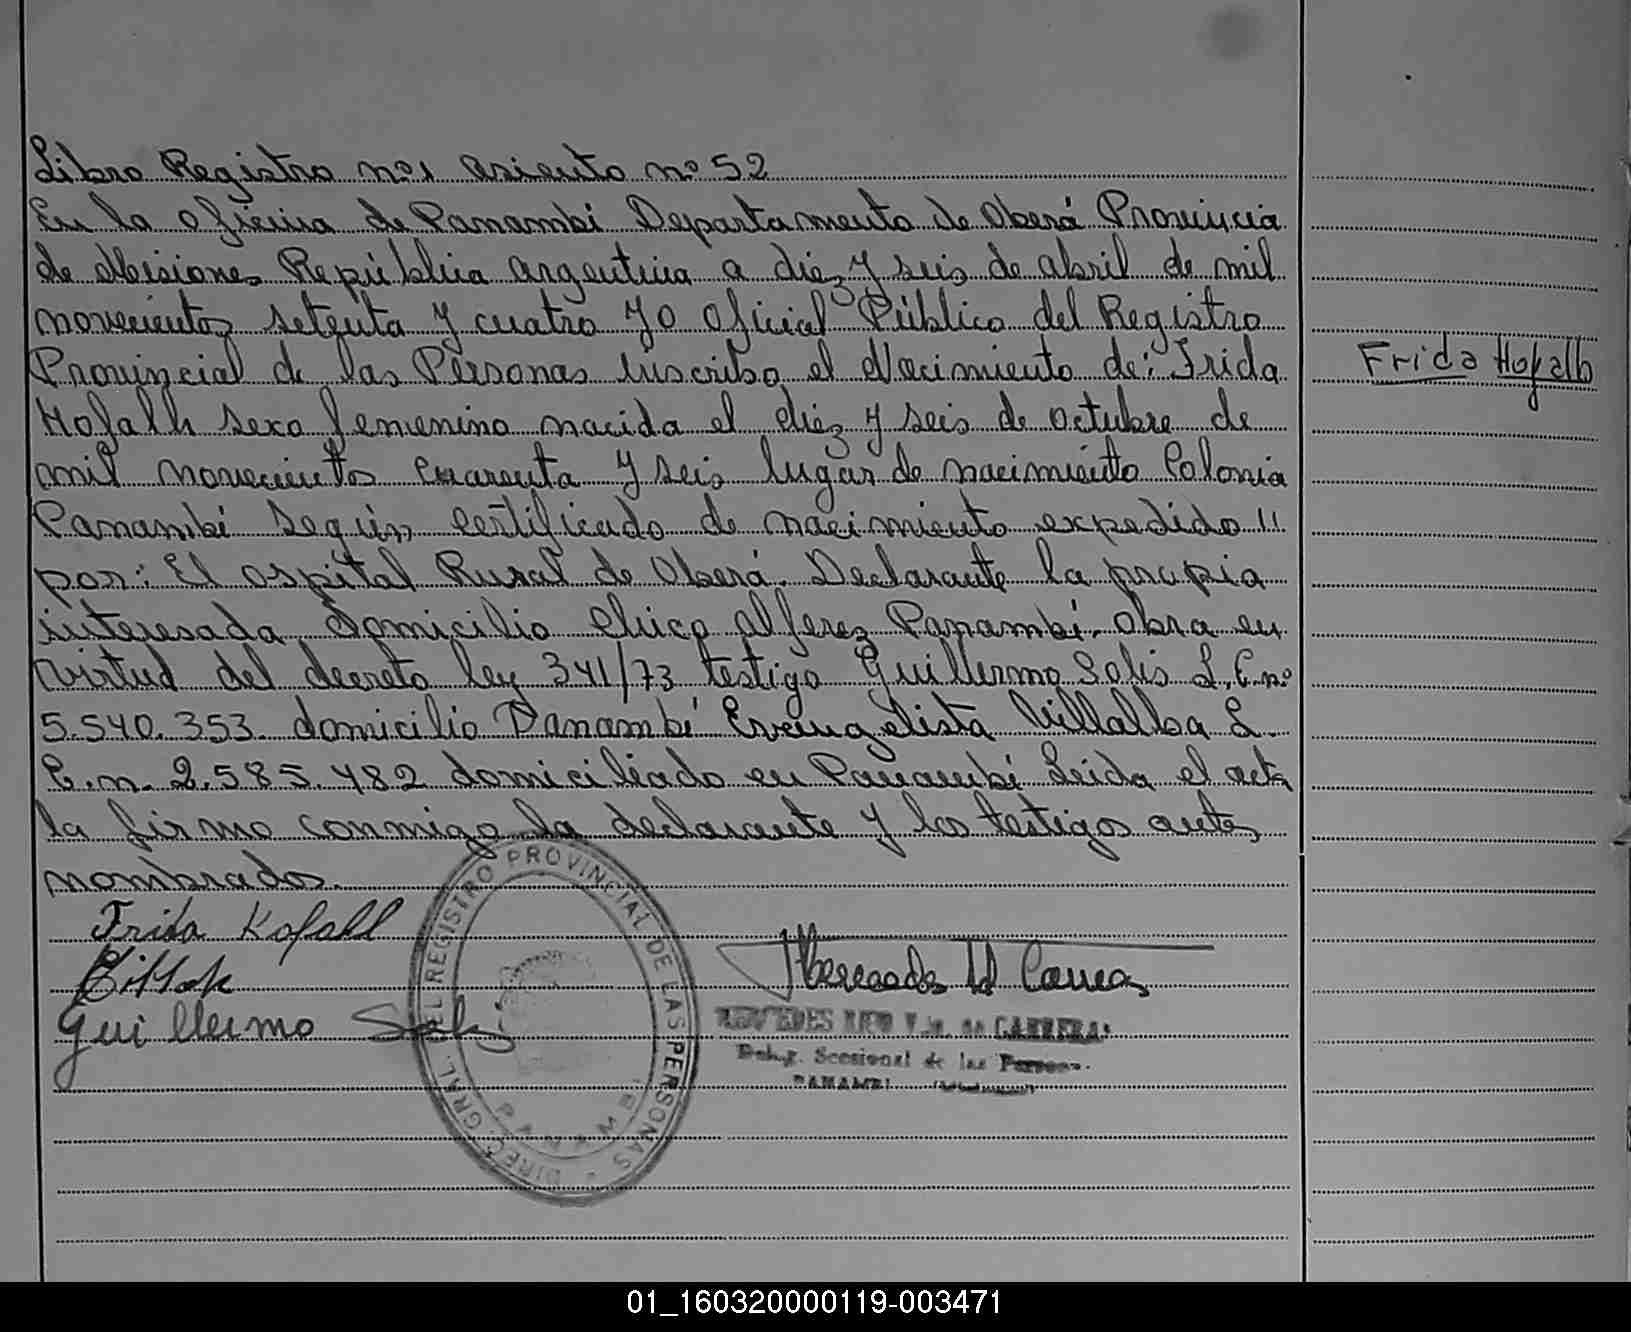 Libro Registro nº1 asiento nº 52
En la oficina de Panambí Departamento de Oberá Provincia
de Misiones República argentina a diez y seis de abril de mil
novecientos setenta y cuatro yo oficial Público del Registro
Provincial de las Personas inscribo el Nacimiento de: Frida
Frida Hofalb
Hofalh sexo femenino nacida el diez y seis de octubre de
mil novecientos cuarenta y seis lugar de nacimiento Colonia
Panambí según certificado de nacimiento expedido "
por: El ospital Rural de Oberá. Declarante la propia
interesada, domicilio Chico alferez Panambí. obra en
virtud del decreto ley 341/73 testigo Guillermo Solis L.E.nº
5.540.353. domicilio Panambí Evangelista Villalba L.
E.n. 2.585.482 domiciliado en Panambí Leida el acta
la firmo conmigo la declarante y los testigos antes
nombrados.
Frida Kofall
Guillermo
Mercedes
DE CARRERA
Deleg. Seccional de las Person.
PANAMBI
DIREC. GRAL. DEL REGISTRO PROVINCIAL DE LAS PERSONAS
PANAMBI
01_160320000119-003471